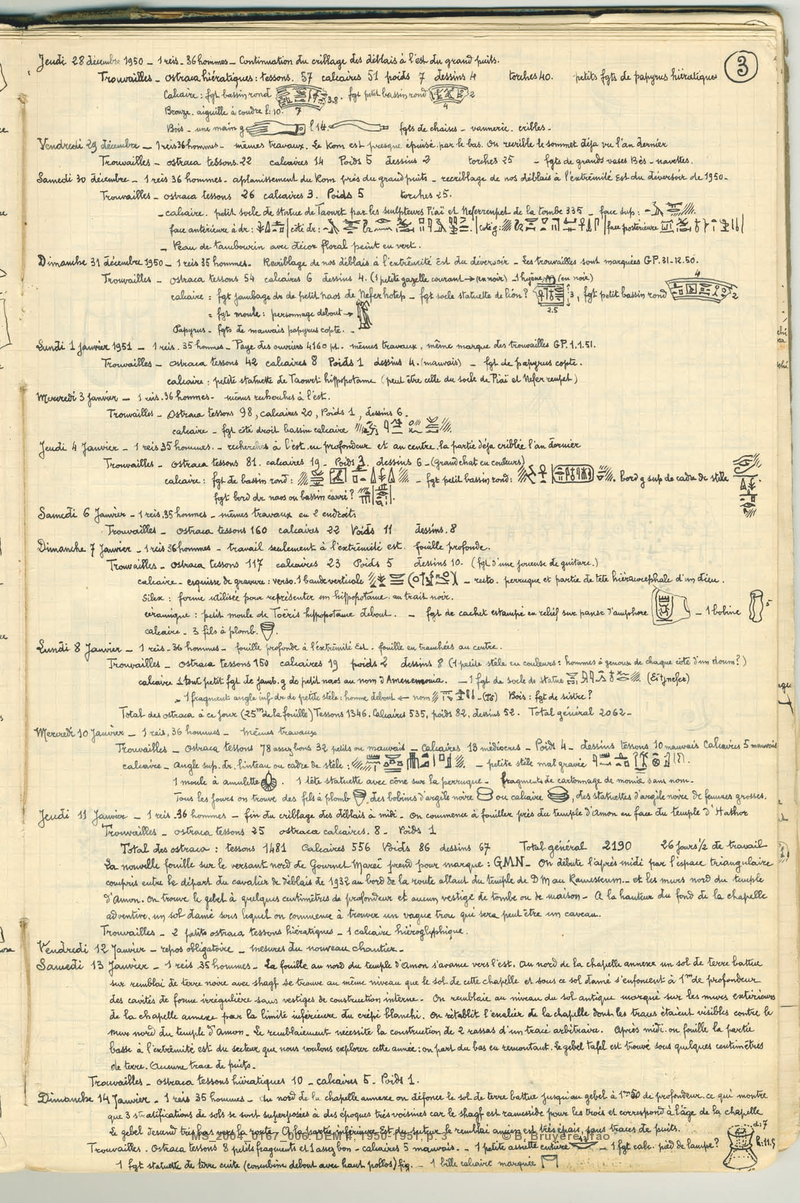 3
Jeudi 28 décembre 1950 – 1 reis. 36 hommes – Continuation du criblage des déblais à l'est du grand puits.
Trouvailles – ostraca hiératiques : tessons. 57 calcaires 51 poids 7 dessins 4 torches 40. petits fgts de papyrus hiératique
Calcaire : fgt bassin rond 3.8. fgt petit bassin rond 2
7 4
Bronze. aiguille à coudre l: 10.
Bois – une main g l 14. fgts de chaises – vannerie. cribles.
Vendredi 29 décembre – 1 reis 36 hommes – mêmes travaux. Le Kom est presque épuisé par le bas. On recrible le sommet déjà vu l'an dernier
Trouvailles – ostraca tessons. 22 calcaires 14 Poids 5 dessins 2 torches 25 – fgts de grands vases Bès – navettes.
Samedi 30 décembre – 1 reis 36 hommes. aplanissement du Kom près du grand puits – recriblage de nos déblais à l'extrémité Est du déversoir de 1950–
Trouvailles – ostraca tessons 26 calcaires 3. Poids 5 torches 25.
– calcaire. petit socle de statue de Taourt par les sculpteurs Piaï et Neferrenpet de la tombe 335 – face sup :
face antérieure à dr : côté dr : côté g: face postérieure
– Peau de tambourin avec décor floral peint en vert.
Dimanche 31 décembre 1950 – 1 reis 35 hommes. Recriblage de nos déblais à l'extrémité Est du déversoir – Les trouvailles sont marquées GP. 31-12.50.
Trouvailles – ostraca tessons 54 calcaires 6 dessins 4. (1 petite gazelle courant → en noir) 1 hyène (en noir)
calcaire : fgt jambage dr de petit naos de Neferhotep – fgt socle statuette de lion? 3, fgt petit bassin rond 2
2.5 4
" fgt moule : personnage debout →
Papyrus – fgts de mauvais papyrus copte. –
Lundi 1 janvier 1951 – 1 reis. 35 hommes – Paye des ouvriers 4160 pt. mêmes travaux, même marque des trouvailles GP. 1.1.51.
Trouvailles – ostraca tessons 42 calcaires 8 Poids 1 dessins 4. (mauvais) – fgt de papyrus copte.
calcaire : petite statuette de Taourt hippopotame (peut être celle du socle de Piaï et Neferrenpet)
Mercredi 3 janvier – 1 reis. 36 hommes. – mêmes recherches à l'est.
Trouvailles – Ostraca tessons 98, calcaires 20, Poids 1, dessins 6.
calcaire – fgt côté droit bassin calcaire
Jeudi 4 Janvier – 1 reis 35 hommes. – recherches à l'est. en profondeur et au centre. la partie déjà criblée l'an dernier
Trouvailles – ostraca tessons 81. calcaires 19 – Poids 3. dessins 6 – (grand chat en couleurs)
calcaire : fgt de bassin rond : – fgt petit bassin rond : bord g sup de cadre de stèle
fgt bord dr naos ou bassin carré?
Samedi 6 Janvier – 1 reis. 35 hommes – mêmes travaux en 2 endroits
Trouvailles – ostraca tessons 160 calcaires 22 Poids 11 dessins. 8
Dimanche 7 Janvier – 1 reis 36 hommes – travail seulement à l'extrémité est. fouille profonde.
Trouvailles – Ostraca tessons 117 calcaires 23 Poids 5 dessins 10. (fgt d'une joueuse de guitare.)
calcaire – esquisse de gravure : verso. 1 bande verticale – recto. perruque et partie de tête hiéracocéphale d'un dieu.
Silex : forme utilisée pour représenter un hippopotame. au trait noir.
céramique : petit moule de Toëris hippopotame debout. – fgt de cachet estampé en relief sur panse d'amphore – 1 bobine 5
calcaire – 3 fils à plomb.
Lundi 8 Janvier – 1 reis. 36 hommes – fouille profonde à l'extrémité Est. – fouille en tranchées au centre.
Trouvailles – ostraca tessons 150 calcaires 19 poids 2 dessins 8 (1 petite stèle en couleurs : hommes à genoux de chaque côté d'un doum?)
calcaire 1 tout petit fgt de jamb. g de petit naos au nom d'Amenemonia. – 1 fgt de socle de statue
" 1 fragment angle inf. dr de petite stèle : homme debout ← nom Bois : fgt de sistre?
Total des ostraca à ce jour (25me de la fouille) Tessons 1346. Calcaires 535, poids 82, dessins 52. Total général 2062–
Mercredi 10 Janvier – 1 reis, 36 hommes – Mêmes travaux
Trouvailles – ostraca tessons 78 assez bons 32 petits ou mauvais – Calcaires 13 médiocres – Poids 4 – dessins tessons 10 mauvais Calcaires 5 mauvais
calcaire – Angle sup. dr. linteau ou cadre de stèle : – petite stèle mal gravée
1 moule à amulette. 1 tête statuette avec cône sur la perruque – fragments de cartonnage de momie sans nom.
Tous les jours on trouve des fils à plomb, des bobines d'argile noire ou calcaire, des statuettes d'argile noire de femmes grosses.
Jeudi 11 Janvier – 1 reis 36 hommes – fin du criblage des déblais à midi – On commence à fouiller près du temple d'Amon en face du temple d'Hathor
Trouvailles – ostraca tessons 25 ostraca calcaires. 8 – Poids 1
Total des ostraca : tessons 1481 Calcaires 556 Poids 86 dessins 67 Total général 2190 26 jours ½ de travail
La nouvelle fouille sur le versant nord de Gournet Mareï prend pour marque : G.M.N. – On débute l'après midi par l'espace triangulaire
compris entre le départ du cavalier de déblais de 1932 au bord de la route allant du temple de D M au Ramesseum – et les murs nord du temple
d'Amon. On trouve le gebel à quelques centimètres de profondeur et aucun vestige de tombe ou de maison – A la hauteur du fond de la chapelle
adventive, un sol damé sous lequel on commence à trouver un vague trou qui sera peut être un caveau.
Trouvailles – 2 petits ostraca tessons hiératiques – 1 calcaire hiéroglyphique.
Vendredi 12 Janvier – repos obligatoire – mesures du nouveau chantier –
Samedi 13 Janvier – 1 reis 35 hommes – La fouille au nord du temple d'Amon s'avance vers l'est. Au nord de la chapelle annexe un sol de terre battue
sur remblai de terre noire avec shagf se trouve au même niveau que le sol de cette chapelle et sous ce sol damé s'enfoncent à 1m de profondeur
des cavités de forme irrégulière sans vestiges de construction interne – On remblaie au niveau du sol antique marqué sur les murs extérieurs
de la chapelle annexe par la limite inférieure du crépi blanchi. On rétablit l'escalier de la chapelle dont les traces étaient visibles contre le
mur nord du temple d'Amon. Le remblaiement nécessite la construction de 2 rassas d'un tracé arbitraire. Après midi. on fouille la partie
basse à l'extrémité est du secteur que nous voulons explorer cette année : on part du bas en remontant. le gebel tafel est trouvé sous quelques centimètres
de terre. Aucune trace de puits.
Trouvailles – ostraca tessons hiératiques 10 – calcaires 5. Poids 1.
Dimanche 14 Janvier – 1 reis 35 hommes – Au nord de la chapelle annexe on défonce le sol de terre battue jusqu'au gebel à 1m50 de profondeur. ce qui montre
que 3 stratifications de sols se sont superposées à des époques très voisines car le shagf est ramesside pour les trois et correspond à l'âge de la chapelle
le gebel descend très bas vers la route – A la partie inférieure Est du secteur. le remblai ancien est très épais, sous traces de puits.
MS_2004_0167_006. DEM F. 1950-1951, p. 3 © B. Bruyère/Ifao
Trouvailles. Ostraca tessons 8 petits fragments et 1 assez bon – calcaires 5 mauvais. – 1 petite assiette cuiture – 1 fgt calc. pied de lampe? d: 7 h. 11.5
1 fgt statuette de terre cuite (concubine debout avec haut pollos) fig. – 1 bille calcaire marquée